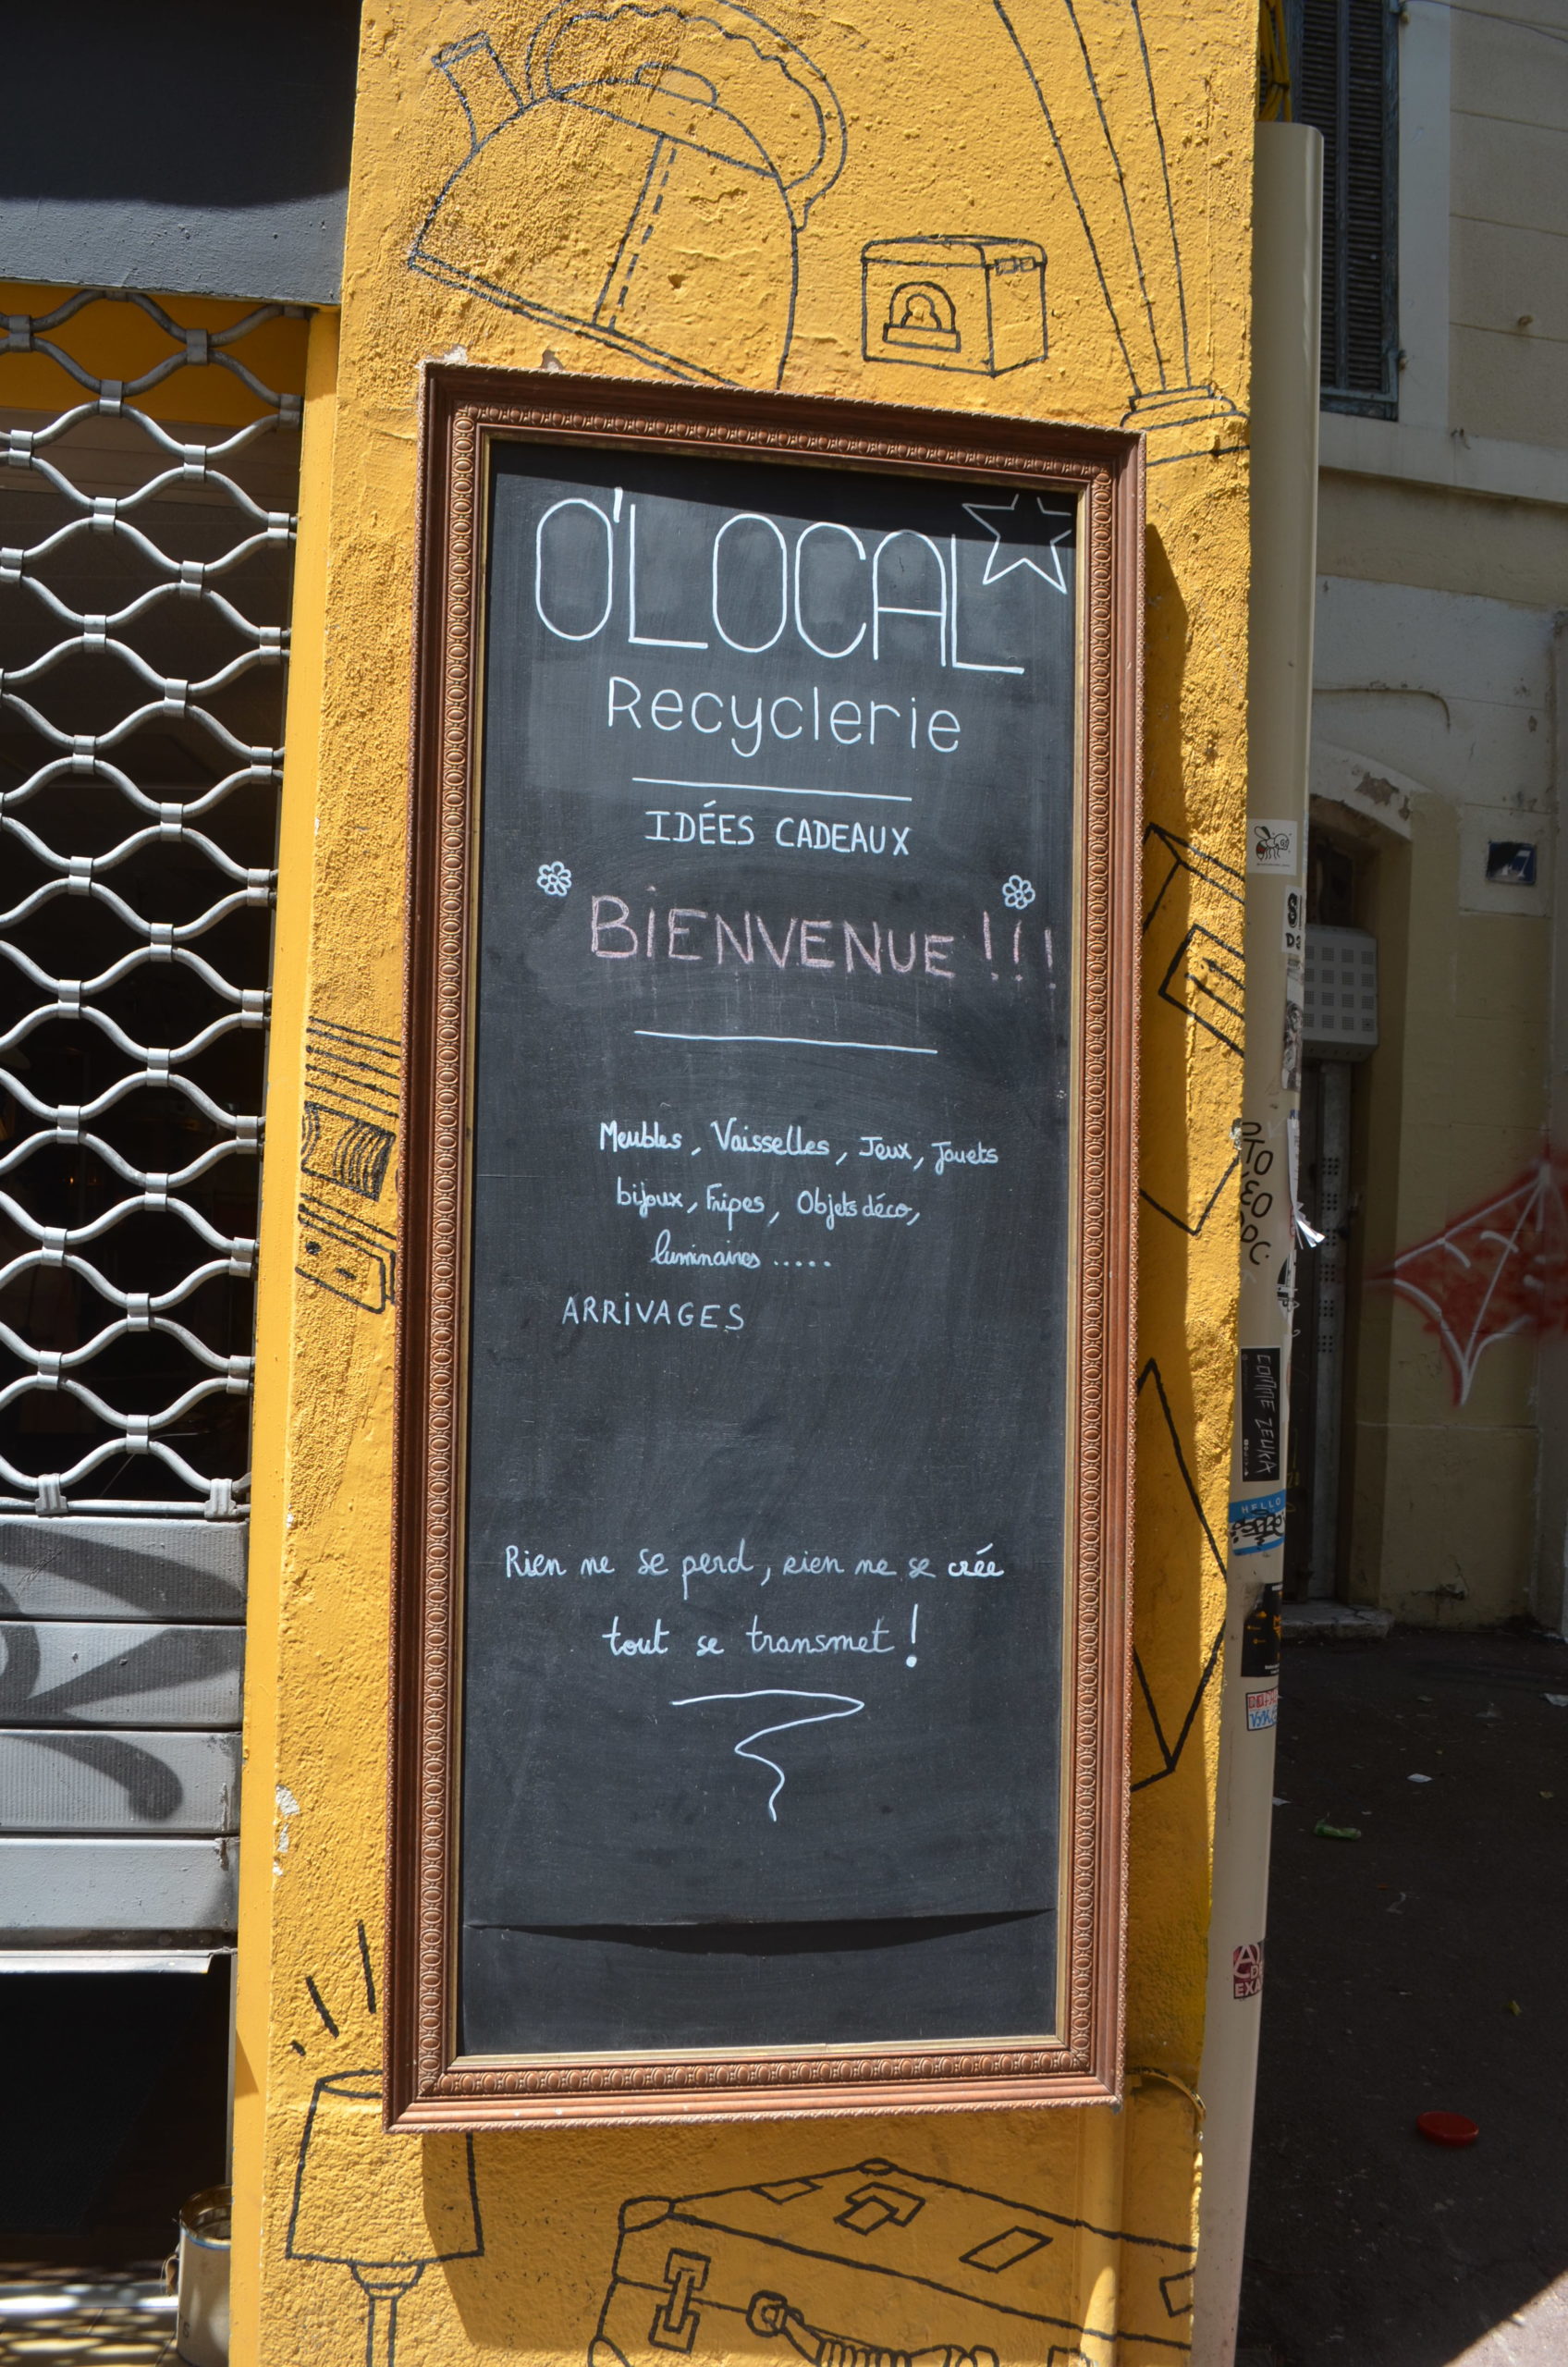 O'LOCAL
Recyclerie
IDÉES CADEAUX
BiENVENUE !!!
Meubles, Vaisselles, Jeux, Jouets
bijoux, Fripes, Objets déco,
luminaires .....
ARRiVAGES
Rien ne se perd, rien ne se crée
tout se transmet !
COMME ZEUKA
HELLO